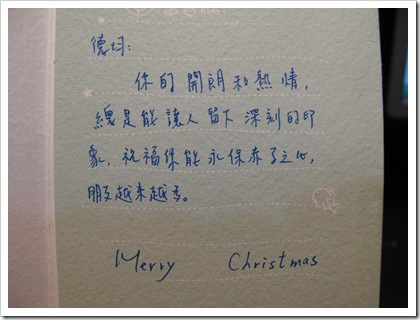 德均:
你的開朗和熱情,
總是能讓人留下深刻的印
象,祝福你能永保赤子之心,
朋友越來越多。
Merry Christmas